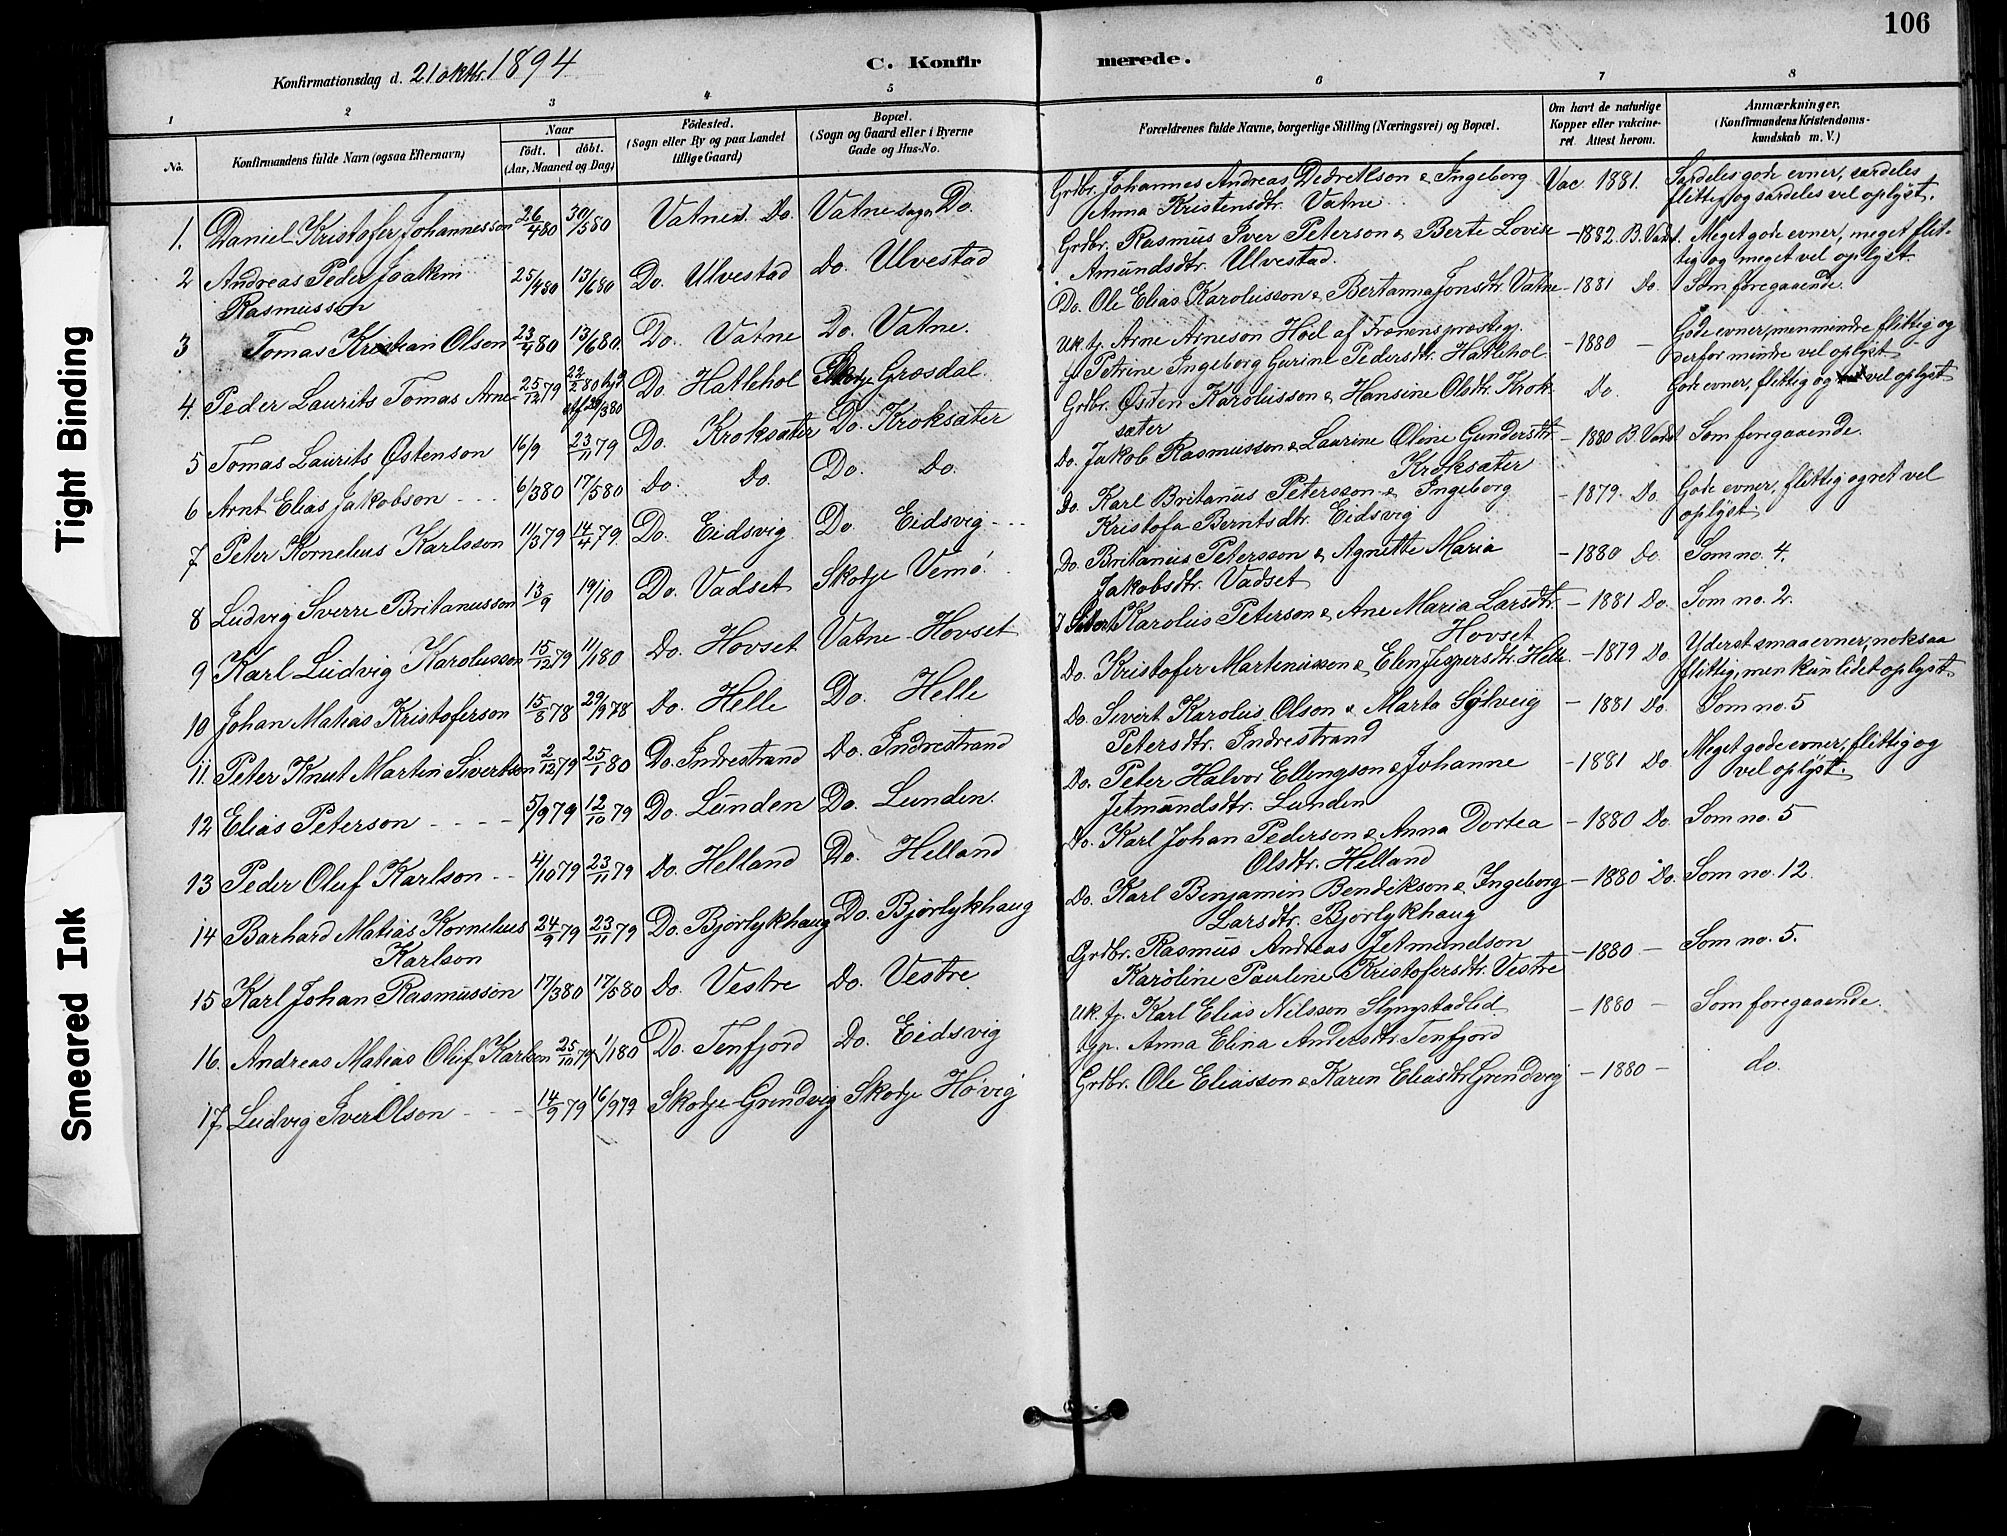 106
Konfirmationsdag d. 21 oktbr. 1894
C. Konfirmerede.
1 2 3 4 5 6 7 8
No.
Konfirmandens fulde Navn (ogsaa Efternavn)
Naar
født. døbt.
(Aar, Maaned og Dag)
Fødested.
(Sogn eller By og paa Landet
tillige Gaard)
Bopæl.
(Sogn og Gaard eller i Byerne
Gade og Hus-No.
Forældrenes fulde Navne, borgerlige Stilling (Næringsvei) og Bopæl.
Om havt de naturlige
Kopper eller vakcine-
ret. Attest herom.
Anmærkninger.
(Konfirmandens Kristendoms-
kundskab m. V.)
1. Daniel Kristofer Johannesson 26/4 80 30/5 80 Vatnes. Do. Vatne sogn Do.
Grdbr. Johannes Andreas & Ingeborg Vac 1881. Særdeles gode evner, særdeles
Anna Kristensdtr. Vatne flittig og særdeles vel oplyst.
2 Andreas Peder Joakim 25/4 80 13/6 80 Do. Ulvestad Do. Ulvestad
Rasmusson
Grdbr. Rasmus Iver Peterson & Berte Lovise - 1882 B. Vadst. Meget gode evner, meget flit-
Amundsdtr. Ulvestad. tig og meget vel oplyst.
3 Tomas Kristian Olson 23/4 80 13/6 80. Do. Vatne Do. Vatne.
Do. Ole Elias Karolusson & Bertanna Jonsdtr. Vatne - 1881 Do. Som foregaaende.
4. Peder Laurits Tomas Arne- 25/12 79 22/2 80 Do. Hatlehol Skodje Grosdal
Uk. fj. Arne Arneson Hoel af Frænens præstegj. - 1880 - Gode evner, men mindre flittig og
Petrine Ingeborg Gurine Pedersdtr. Hatlehol derfor mindre vel oplyst
5 Tomas Laurits Østenson 16/9 23/11 79 Do. Kroksæter Do. Kroksæter
Grdbr. Østen Karolusson & Hansine Olsdtr. Krok- Do. Gode evner, flittig og vel oplyst
sæter
6 Arnt Elias Jakobson 6/3 80 17/5 80 Do. Do. Do. Do.
Do. Jakob Rasmusson & Laurine Oline Gundersdtr. - 1880 B. Vadst. Som foregaaende.
Kroksæter
7 Peter Kornelius Karlsson 11/3 79 14/4 79. Do. Eidsvig Do. Eidsvig
Do. Karl Britanus Petersson & Ingeborg - 1879. Do. Gode evner, flittig og ret vel
Kristofa Berntsdtr. Eidsvig oplyst.
8 Ludvig Sverre Britanusson 13/9 19/10 Do. Vadset Skodje Vemö.
Do. Britanus Petersson & Agnette Maria - 1880 Do. Som no. 4.
Jakobsdtr. Vadset
9 Karl Ludvig Karolusson 15/12 79 11/1 80 Do. Hovset Vatne Hovset
Karolus Peterson & Ane Maria Larsdtr. - 1881 Do. Som no. 2.
Hovset
10 Johan Matias Kristoferson 15/8 78 29/9 78 Do. Helle Do. Helle
Do. Kristofer Martinusson & Elen Jespersdtr. Helle - 1879 Do. Yderst smaa evner, nok saa
flittig, men kun lidet oplyst.
11. Peter Knut Martin Sivertson 2/12 79 25/1 80 Do. Indrestrand Do. Indrestrand
Do. Sivert Karolus Olson & Marta Sylveig - 1881 Do. Som no. 5
Petersdtr. Indrestrand
12 Elias Peterson 5/9 79 12/10 79 Do. Lunden Do. Lunden.
Do. Peter Halvor Ellengson & Johanne - 1881 Do. Meget gode evner, flittig og
Jetmundsdtr. Lunden vel oplyst.
13 Peder Oluf Karlson 4/10 79 23/11 79 Do. Helland Do. Helland
Do. Karl Johan Pederson & Anna Dortea - 1880 Do. Som no. 5
Olsdtr. Helland
14 Barhard Matias Kornelius 24/9 79 23/11 79 Do. Bjorlykhaug Do. Bjorlykhaug
Karlson
Do. Karl Benjamin Bendikson & Ingeborg - 1880 Do. Som no. 12.
Larsdtr. Bjorlykhaug
15 Karl Johan Rasmusson 17/3 80 17/5 80 Do. Vestre Do. Vestre
Grdbr. Rasmus Andreas Jetmundson - 1880 - Som no. 5.
Karoline Pauline Kristofersdtr. Vestre
16. Andreas Matias Oluf Karlson 25/10 79 1/1 80 Do. Tenfjord Do. Eidsvig
Uk. fj. Karl Elias Nilsson Slyngstadlid - 1880 - Som foregaaende.
gp. Anna Elina Andersdtr. Tenfjord
17 Ludvig Iver Olson 14/9 79 16/9 79 Skodje Grendvig Skodje Høvig
Grdbr. Ole Eliasson & Karen Eliasdtr. Grendvig - 1880 - do.
Tight Binding
Smeared Ink